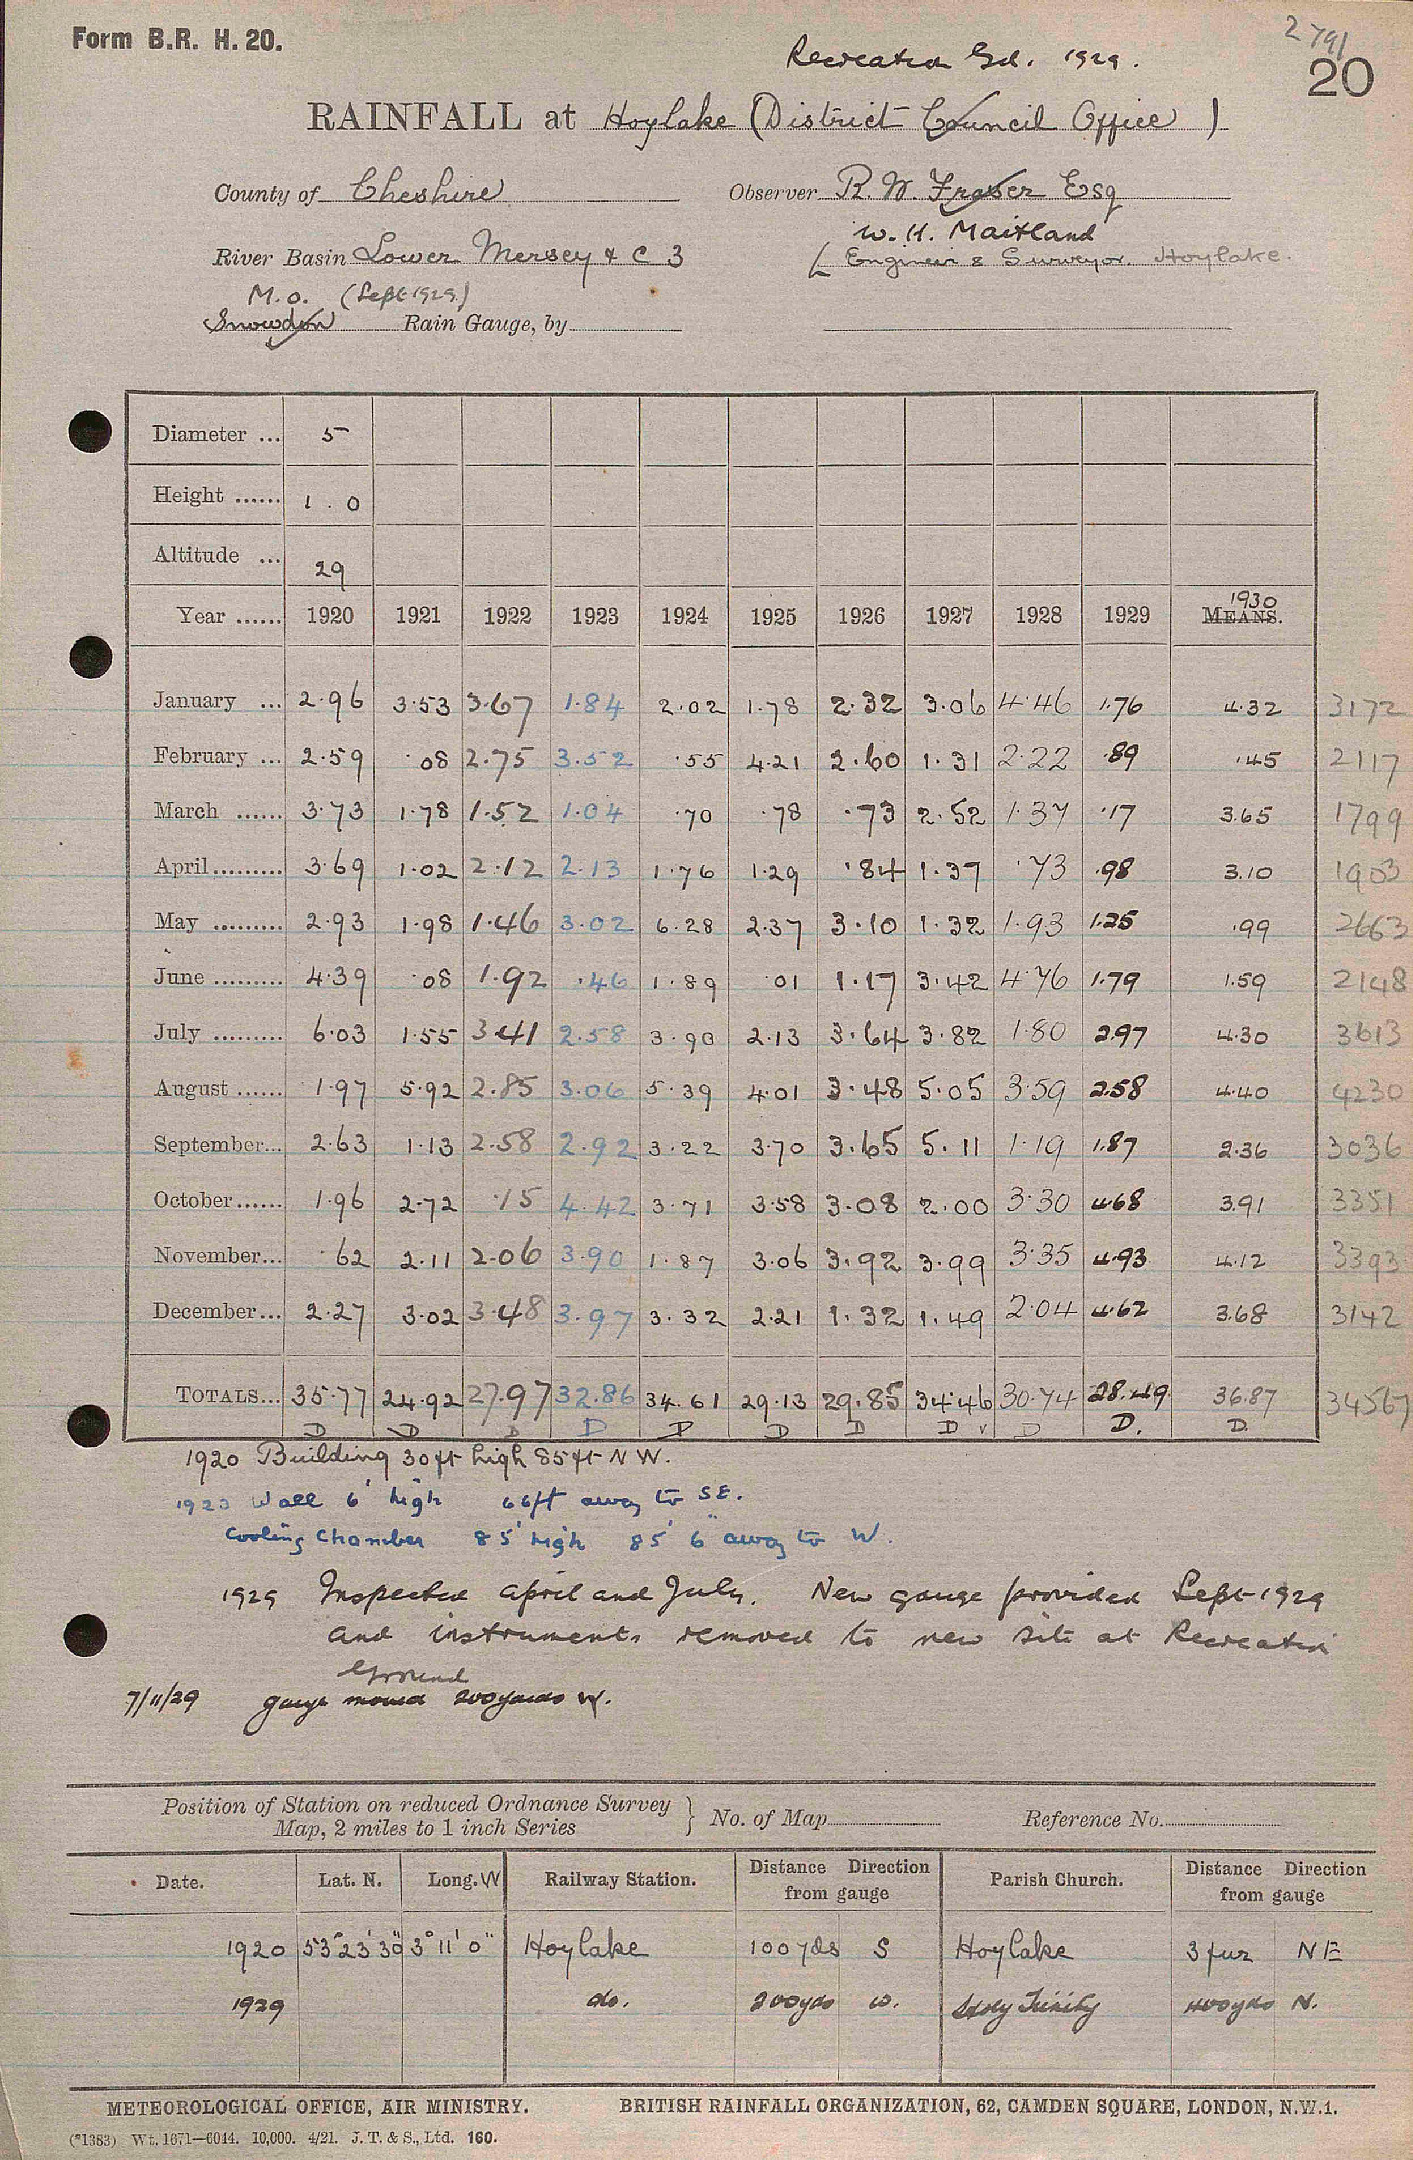 Form B.R. H. 20.
2791
20
Recreation Gd. 1929.
RAINFALL at Hoylake (District Council Office)
County of Cheshire Observer R. W. Fraser Esq
W. H. Maitland
River Basin Lower Mersey & C 3 ( Engineer & Surveyor. Hoylake.
M.O. (Sept 1929)
Snowdon Rain Gauge, by
Diameter ... 5
Height ...... 1 . 0
Altitude ... 29
Year ...... 1920 1921 1922 1923 1924 1925 1926 1927 1928 1929 1930 MEANS.
January ... 2.96 3.53 3.67 1.84 2.02 1.78 2.32 3.06 4.46 1.76 4.32 3172
February ... 2.59 .08 2.75 3.52 .55 4.21 2.60 1.31 2.22 .89 .45 2117
March ...... 3.73 1.78 1.52 1.04 .70 .78 .73 2.52 1.37 .17 3.65 1799
April ......... 3.69 1.02 2.12 2.13 1.76 1.29 .84 1.37 .73 .98 3.10 1903
May ......... 2.93 1.98 1.46 3.02 6.28 2.37 3.10 1.32 1.93 1.25 .99 2663
June ......... 4.39 .08 1.92 .46 1.89 .01 1.17 3.42 4.76 1.79 1.59 2148
July ......... 6.03 1.55 3.41 2.58 3.90 2.13 3.64 3.82 1.80 2.97 4.30 3613
August ...... 1.97 5.92 2.85 3.06 5.39 4.01 3.48 5.05 3.59 2.58 4.40 4230
September... 2.63 1.13 2.58 2.92 3.22 3.70 3.65 5.11 1.19 1.87 2.36 3036
October...... 1.96 2.72 .15 4.42 3.71 3.58 3.08 2.00 3.30 4.68 3.91 3351
November... .62 2.11 2.06 3.90 1.87 3.06 3.92 3.99 3.35 4.93 4.12 3393
December... 2.27 3.02 3.48 3.97 3.32 2.21 1.32 1.49 2.04 4.62 3.68 3142
TOTALS... 35.77 24.92 27.97 32.86 34.61 29.13 29.85 34.46 30.74 28.49 36.87 34567
D D D D D D D D v D D. D.
1920 Building 30ft high 85ft N W.
1923 Wall 6' high 66ft away to SE.
Cooling Chamber 85' high 85' 6" away to W.
1929 Inspected April and July. New gauge provided Sept 1929
and instruments removed to new site at Recreation
Ground
7/11/29 gauge moved 200 yards W.
Position of Station on reduced Ordnance Survey
Map, 2 miles to 1 inch Series } No. of Map Reference No.
Date. Lat. N. Long. W Railway Station. Distance Direction from gauge Parish Church. Distance Direction from gauge
1920 53° 23' 30" 3° 11' 0" Hoylake 100 yds S Hoylake 3 fur NE
1929 do. 200 yds W. Holy Trinity 400 yds N.
METEOROLOGICAL OFFICE, AIR MINISTRY. BRITISH RAINFALL ORGANIZATION, 62, CAMDEN SQUARE, LONDON, N.W.1.
(*1383) Wt. 1671—6044. 10,000. 4/21. J. T. & S., Ltd. 160.